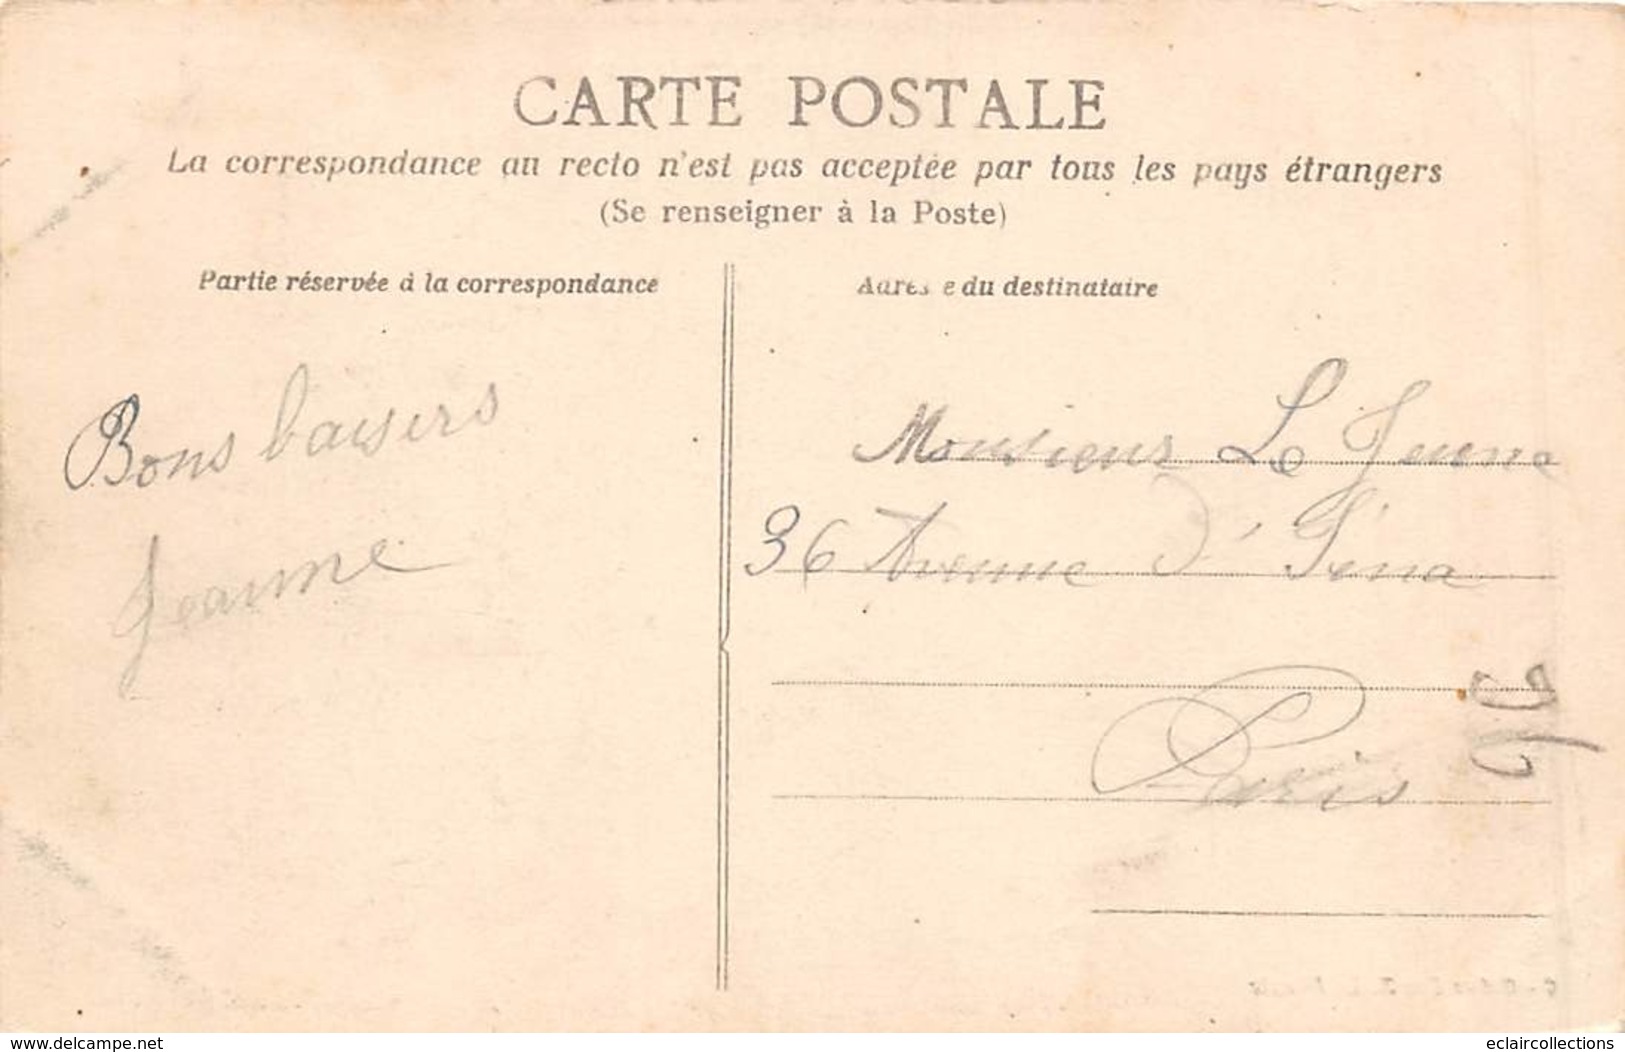 CARTE POSTALE
La correspondance au recto n'est pas acceptée par tous les pays étrangers
(Se renseigner à la Poste)
Partie réservée à la correspondance
Adresse du destinataire
Bons baisers
Jeanne
Monsieur Le Jeune
36 Avenue d'Iéna
Paris
www.delcampe.net
eclaircollections